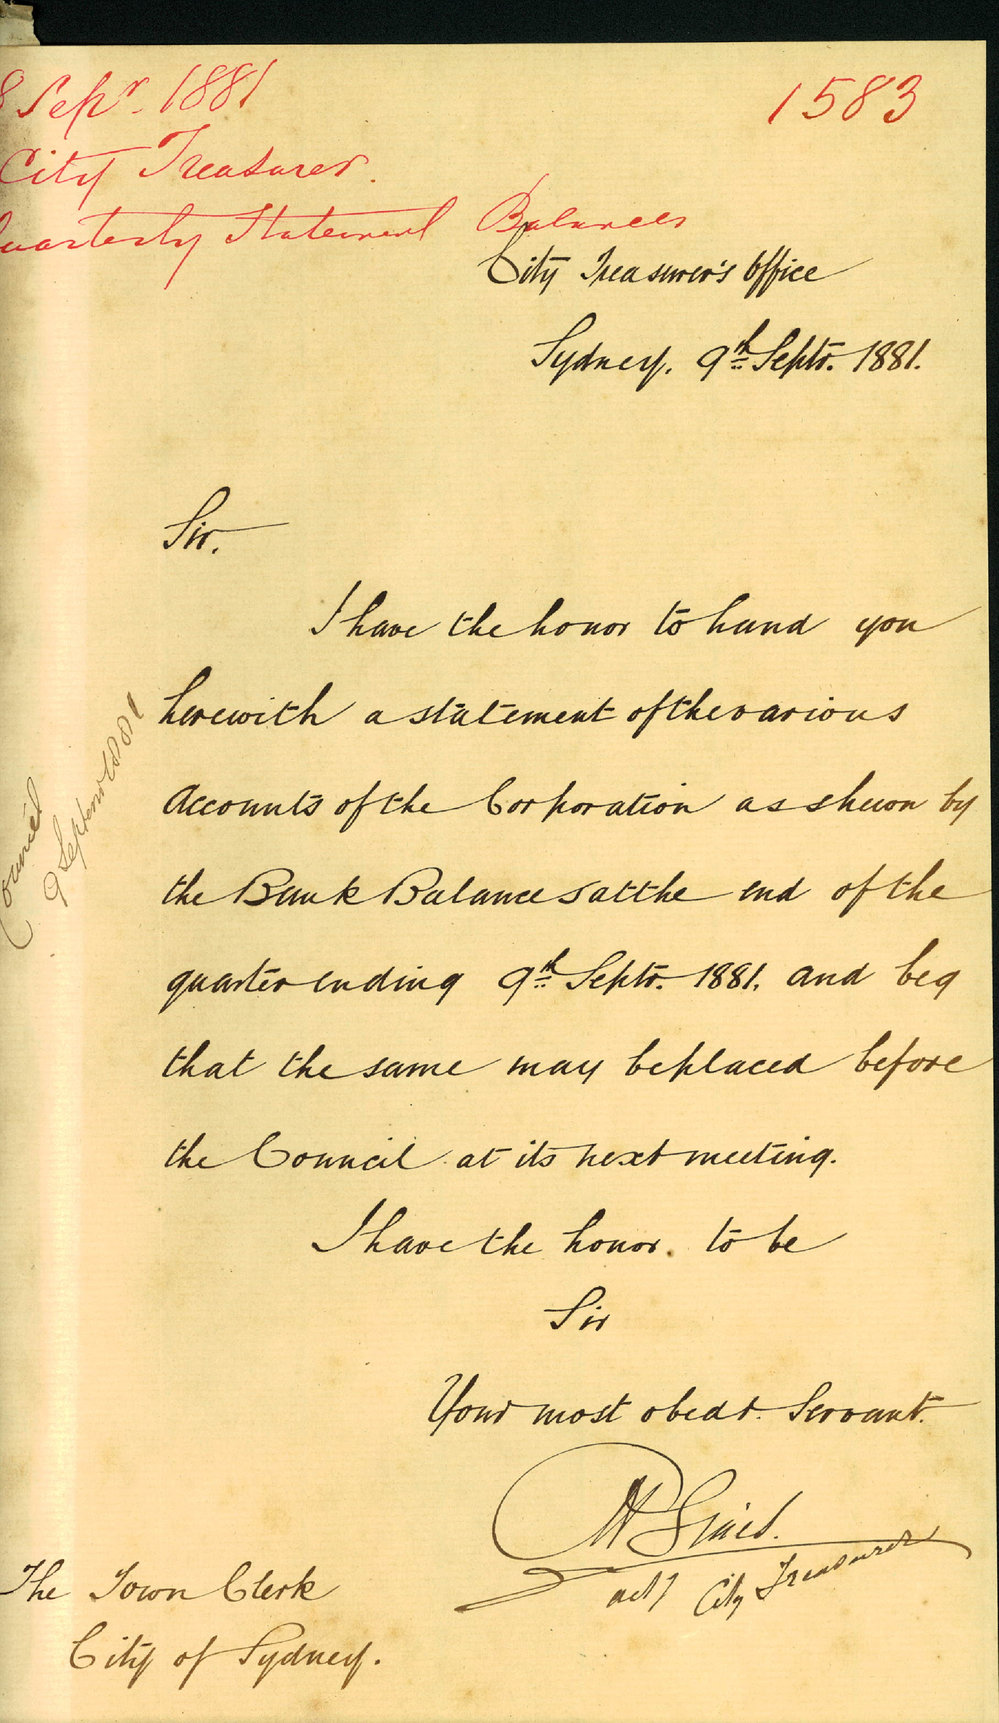 8 Sepr. 1881
1583
City Treasurer.
Quarterly Statement Balances
City Treasurer's Office
Sydney. 9th Septr. 1881.
Sir.
I have the honor to hand you
herewith a statement of the various
Accounts of the Corporation as shewn by
the Bank Balances at the end of the
quarter ending 9th Septr. 1881. and beg
that the same may be placed before
the Council at its next meeting.
I have the honor. to be
Sir
Your most obedt. Servant.
actg City Treasurer
The Town Clerk
City of Sydney.
Council
9 September 1881